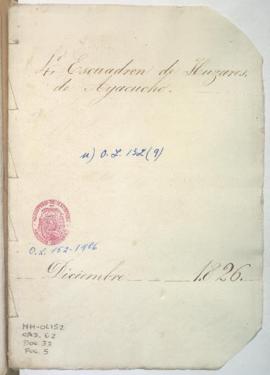 Escuadron de Huzares,
de Ayacucho.
O.L. 152 (9)
O.L. 152-1986
Diciembre 1826.
MH-OL152
CAJ. 62
DOC 33
FOL. 5